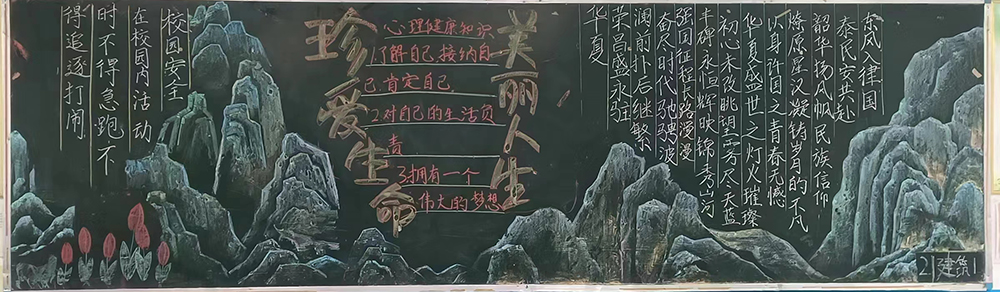 东风入律国
泰民安共赴
韶华扬风帆民族信仰
燎原星汉凝铸岁月的不凡
以身许国之青春无憾
华夏盛世之灯火璀璨
初心未改眺望雾尽天蓝
丰碑永恒辉映锦秀山河
强国征程长路漫漫
奋尽时代驰骋波
澜前扑后继繁
荣昌盛永驻
华夏
美丽人生
珍爱生命
心理健康知识
1.了解自己,接纳自
己,肯定自己
2对自己的生活负
责
3拥有一个
伟大的梦想
校园安全
在校园内活动
时不得急跑不
得追逐打闹
21建筑1